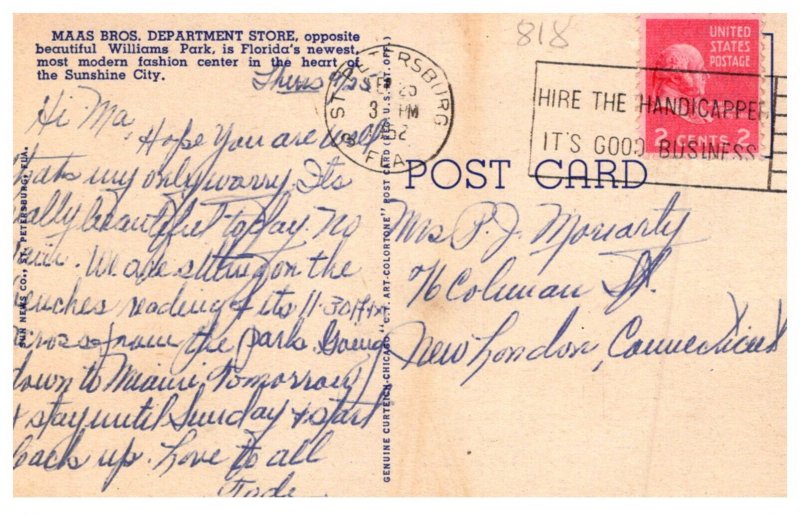 MAAS BROS. DEPARTMENT STORE, opposite
beautiful Williams Park, is Florida's newest,
most modern fashion center in the heart of
the Sunshine City.
Thurs 9/25
Hi Ma,
Hope You are well
thats my only worry. Its
really beautiful today. No
rain. We are sitting on the
benches reading & its 11:30 A.M.
across from the park. Going
down to Miami Tomorrow
& stay until Sunday & start
back up. Love to all
SUN NEWS CO., ST. PETERSBURG, FLA.
GENUINE CURTEICH-CHICAGO "C.T. ART-COLORTONE" POST CARD (REG. U.S. PAT. OFF.)
818
ST. PETERSBURG
SEP 25
3 PM
1952
FLA.
HIRE THE HANDICAPPED
IT'S GOOD BUSINESS
UNITED
STATES
POSTAGE
2 CENTS 2
POST CARD
Mrs P. J. Moriarty
76 Colman St.
New London, Connecticut